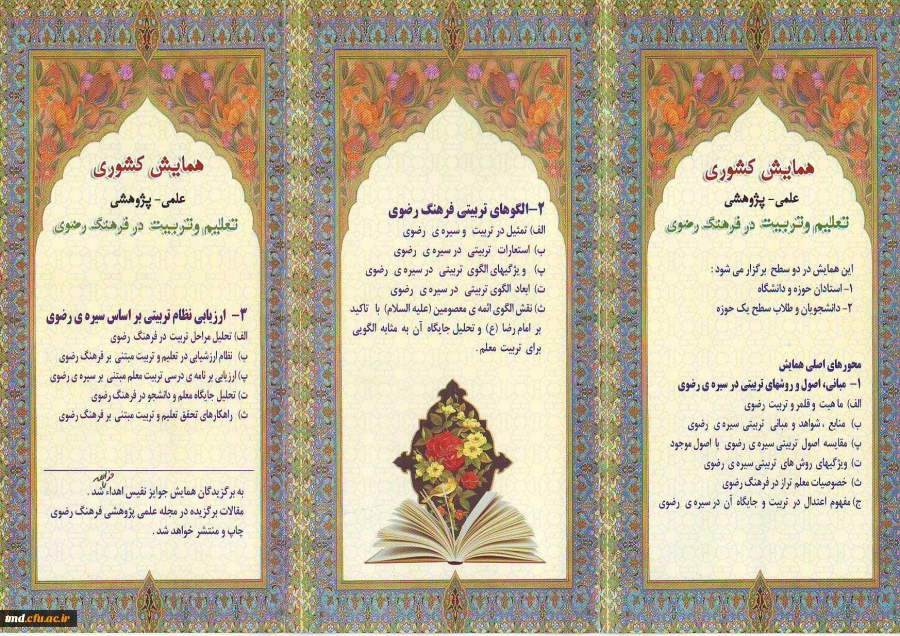 همایش کشوری
علمی- پژوهشی
تعلیم وتربیت در فرهنگ رضوی
این همایش در دو سطح برگزار می شود :
۱- استادان حوزه و دانشگاه
۲- دانشجویان و طلاب سطح یک حوزه
محورهای اصلی همایش
۱- مبانی، اصول و روشهای تربیتی در سیره ی رضوی
الف) ماهیت و قلمرو تربیت رضوی
ب) منابع ، شواهد و مبانی تربیتی سیره ی رضوی
پ) مقایسه اصول تربیتی سیره ی رضوی با اصول موجود
ت) ویژگیهای روش های تربیتی سیره ی رضوی
ث) خصوصیات معلم تراز در فرهنگ رضوی
ج) مفهوم اعتدال در تربیت و جایگاه آن در سیره ی رضوی
۲-الگوهای تربیتی فرهنگ رضوی
الف) تمثیل در تربیت و سیره ی رضوی
ب) استعارات تربیتی در سیره ی رضوی
پ) ویژگیهای الگوی تربیتی در سیره ی رضوی
ت) ابعاد الگوی تربیتی در سیره ی رضوی
ث) نقش الگوی ائمه ی معصومین (علیه السلام) با تاکید
بر امام رضا (ع) و تحلیل جایگاه آن به مثابه الگویی
برای تربیت معلم .
همایش کشوری
علمی- پژوهشی
تعلیم وتربیت در فرهنگ رضوی
۳- ارزیابی نظام تربیتی بر اساس سیره ی رضوی
الف) تحلیل مراحل تربیت در فرهنگ رضوی
ب) نظام ارزشیابی در تعلیم و تربیت مبتنی بر فرهنگ رضوی
پ) ارزیابی برنامه ی درسی تربیت معلم مبتنی بر سیره ی رضوی
ت) تحلیل جایگاه معلم و دانشجو در فرهنگ رضوی
ث) راهکارهای تحقق تعلیم و تربیت مبتنی بر فرهنگ رضوی
به برگزیدگان همایش جوایز نفیس اهداء شد .
مقالات برگزیده در مجله علمی پژوهشی فرهنگ رضوی
چاپ و منتشر خواهد شد .
tmd.cfu.ac.ir